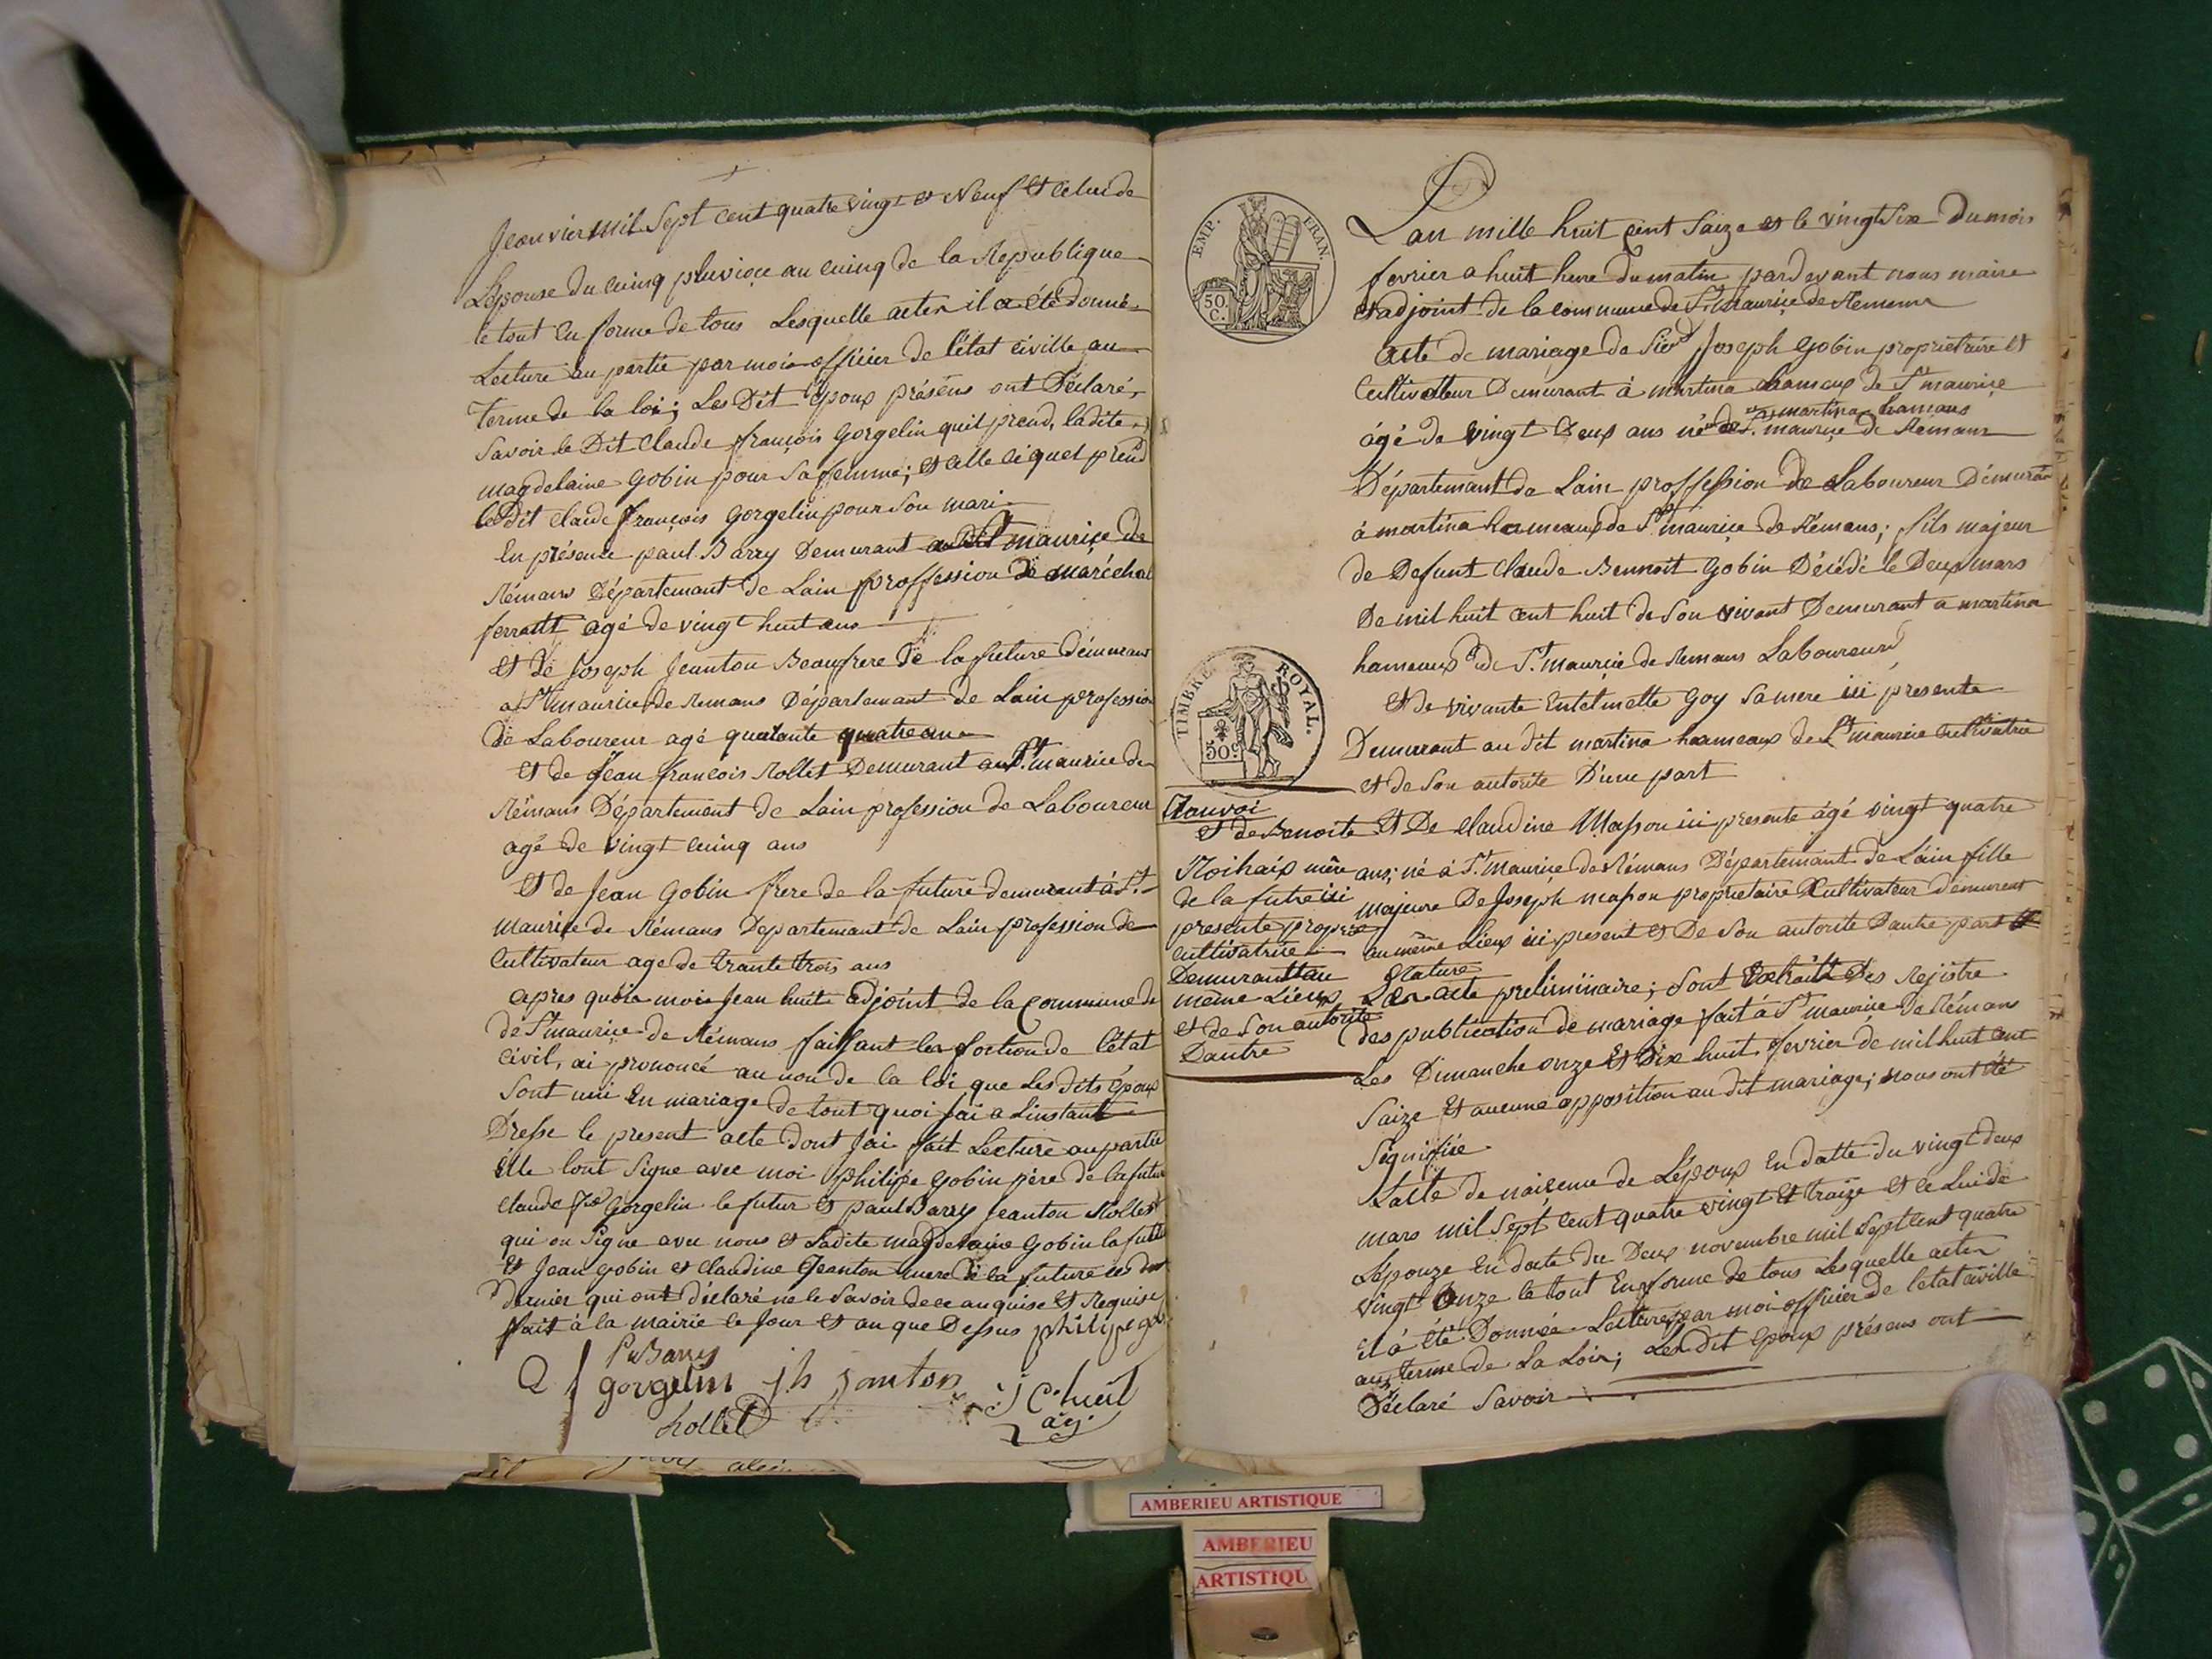 Jeanvier mil Sept cent quatre vingt et Neuf et celui de
Lepouse du cuinq pluvioce au cuinq de la Republique
le tout en forme de tous Lesquelle acten il a été donné
Lecture au partie par moi officier de l'état civille au
terme de la loi; Les Dit Epoux présens ont Déclaré
Savoir le Dit Claude françois Gorgelin quil prend, ladite
magdelaine Gobin pour Sa femme; et celle ci quel prend
le Dit claude françois Gorgelin pour Son mari
En présence paul Barry Demurant au Dit St maurice de
Rémans Département de Lain proffession de maréchal
ferrant agé de vingt huit ans
et de Joseph Jeanton Beaufrere de la future démurant
a St maurice de Remans Départemant de Lain profession
de Laboureur agé quarante quatre ans
et de Jean françois Rollet Demurant au St maurice de
Rémans Département de Lain profession de Laboureur
agé de vingt cuinq ans
Et de Jean Gobin frere de la future demurant à St
maurice de Rémans Departemant de Lain profession de
Cultivateur age de trante trois ans
apres quoi moi Jean huit adjoint de la Commune de
de St maurice de Rémans faissant les fontion de l'état
civil, ai prononcé au non de la loi que Les dits époux
Sont uni En mariage de tout quoi Jai a Linstant
Dresse le present acte dont Jai fait Lecture au partie
Elle lont Signe avec moi philipe Gobin père de la future
claude fois Gorgelin le futur et paul Barry Jeanton Rollet
qui on Signe avec nous et Ladite magdelaine Gobin la future
et Jean gobin et claudine Jeanton mere de la future ces dit
dernier qui ont déclaré ne le Savoir de ce anquise et Requise
fait à la mairie le Jour et an que Dessus philipe go
P Barry
gorgelin jh janton
Rollet
J C huit
adj.
EMP. FRAN.
50. C.
Lan mille huit cent Saize et le vingt Six Du mois
fevrier a huit heure Du matin pardevant nous maire
et adjoint de la commune de St maurice de Remens
acte de mariage de Joseph Gobin proprietaire et
Cultivatteur Demurant à martina hameaux de St maurice
a martina hamaus
âgé de vingt Deux ans né de St maurice de Rémans
Départemant de Lain proffession de Laboureur Démurant
à martina hameaux de St maurice de Rémans; fils majeur
de Defunt Claude Bennoit Gobin Décédé le Deux mars
De mil huit cent huit de Son vivant Demurant a martina
hameaux de St maurice de Remans Laboureur
TIMBRE ROYAL.
50c
et de vivante Goy Sa mere ici presente
Demurant au dit martina hameaux de St maurice Cultivatrice
et de Son autorite D'une part
Ranvoi
et de Benoite
mère
de la future ici
presente propre
cultivatrice
Demurant au
même Lieux
et de Son autorite
Dautre
Et De Claudine Masson ici presente âgé vingt quatre
ans; né à St maurice de Rémans Départemant de L'ain fille
majeure De Joseph masson proprietaire Cultivateur démurent
au même Lieux ici present et De Son autorite Dautre part
acte preliminaire; Sont Extrait Des Rejistre
des publication de mariage fait à St maurice De Rémans
Les Dimanche onze et Dix huit fevrier de mil huit cent
Saize Et aucune opposition au dit mariage; nous ont été
Signifiée
L'acte de naicence de Lépoux En datte du vingt deux
mars mil Sept cent quatre vingt Et traize et celui de
Lépouze En date du Deux novembre mil Sept cent quatre
vingt Onze le tout En forme de tous Lesquelle acten
il à été Donnée Lecture par moi officier de letat civille
aux terme de La Loix; Les dit époux présens ont
Déclaré Savoir
AMBERIEU ARTISTIQUE
AMBERIEU
ARTISTIQU